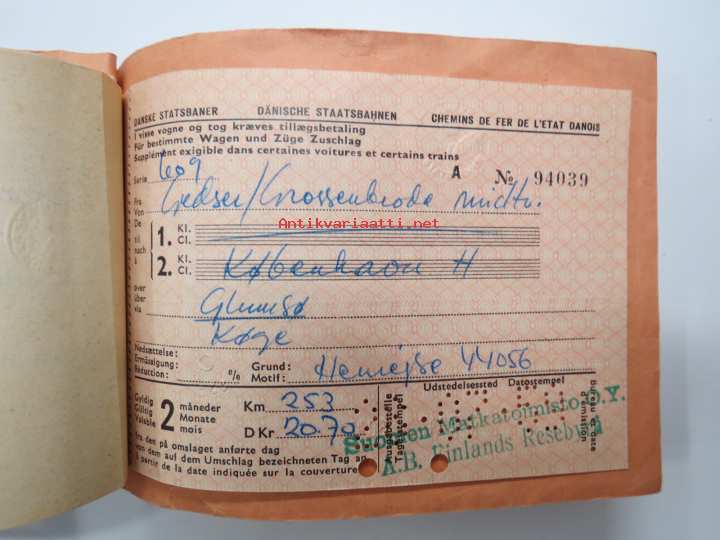 DANSKE STATSBANER DÄNISCHE STAATSBAHNEN CHEMINS DE FER DE L'ETAT DANOIS
I visse vogne og tog kræves tillægsbetaling
Für bestimmte Wagen und Züge Zuschlag
Supplément exigible dans certaines voitures et certains trains
Serie 609 A № 94039
Fra
Von
De
Gedser/Grossenbrode midtv.
Antikvariaatti.net
til
nach
à
1. Kl.
Cl.
2. Kl.
Cl.
København H
over
über
via
Glumsø
Køge
Nedsættelse:
Ermässigung:
Réduction:
%
Grund:
Motif:
Henrejse 44056
Gyldig
Gültig
Valable
2
måneder
Monate
mois
Km 253
D Kr 20.70
Ausgabestelle
Tagesstempel
Udstedelsessted Datostempel
Bureau et date
d'émission
Suomen Matkatoimisto O.Y.
A.B. Finlands Resebyrå
fra den på omslaget anførte dag
von dem auf dem Umschlag bezeichneten Tag an
à partir de la date indiquée sur la couverture